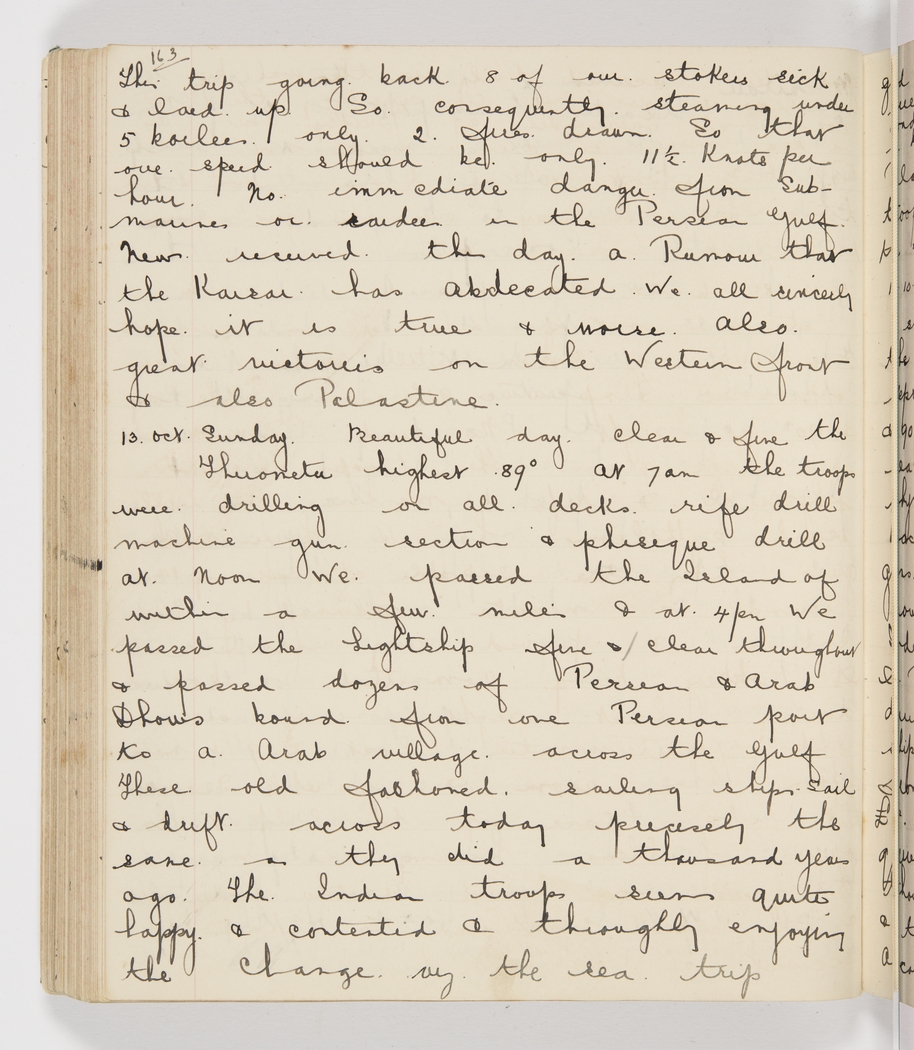 163
This trip going back 8 of our stokers sick
& laed up. So. consequently. steaming under
5 boilers. only. 2. fires. drawn. So that
our speed should be. only. 11½ Knots per
hour. No. immediate danger from Sub-
marines or. raiders in the Persian Gulf.
News received. this day. a. Rumour that
the Kaisar. has abdecated. We. all sincerely
hope. it is true & more. also.
great victories on the Western front
& also Palastine.
13. Oct. Sunday. Beautiful day. clear & fine the
Thurometer highest 89° at 7am the troops
were drilling on all decks. rife drill
machine gun section & phiseque drill
at. Noon We. passed the Island of
within a few. miles & at. 4/pm We
passed the Lightship fine & / clear throughout
& passed dozens of Persean & Arab
Dhows bound. from one Persean port
to a. Arab village. across the Gulf
These old fashoned. sailing ships. Sail
& drift. across today precisely the
same. as they did a thousand years
ago. The. Indian troops seems quite
happy. & contented & throughly enjoying
the change. the sea. trip